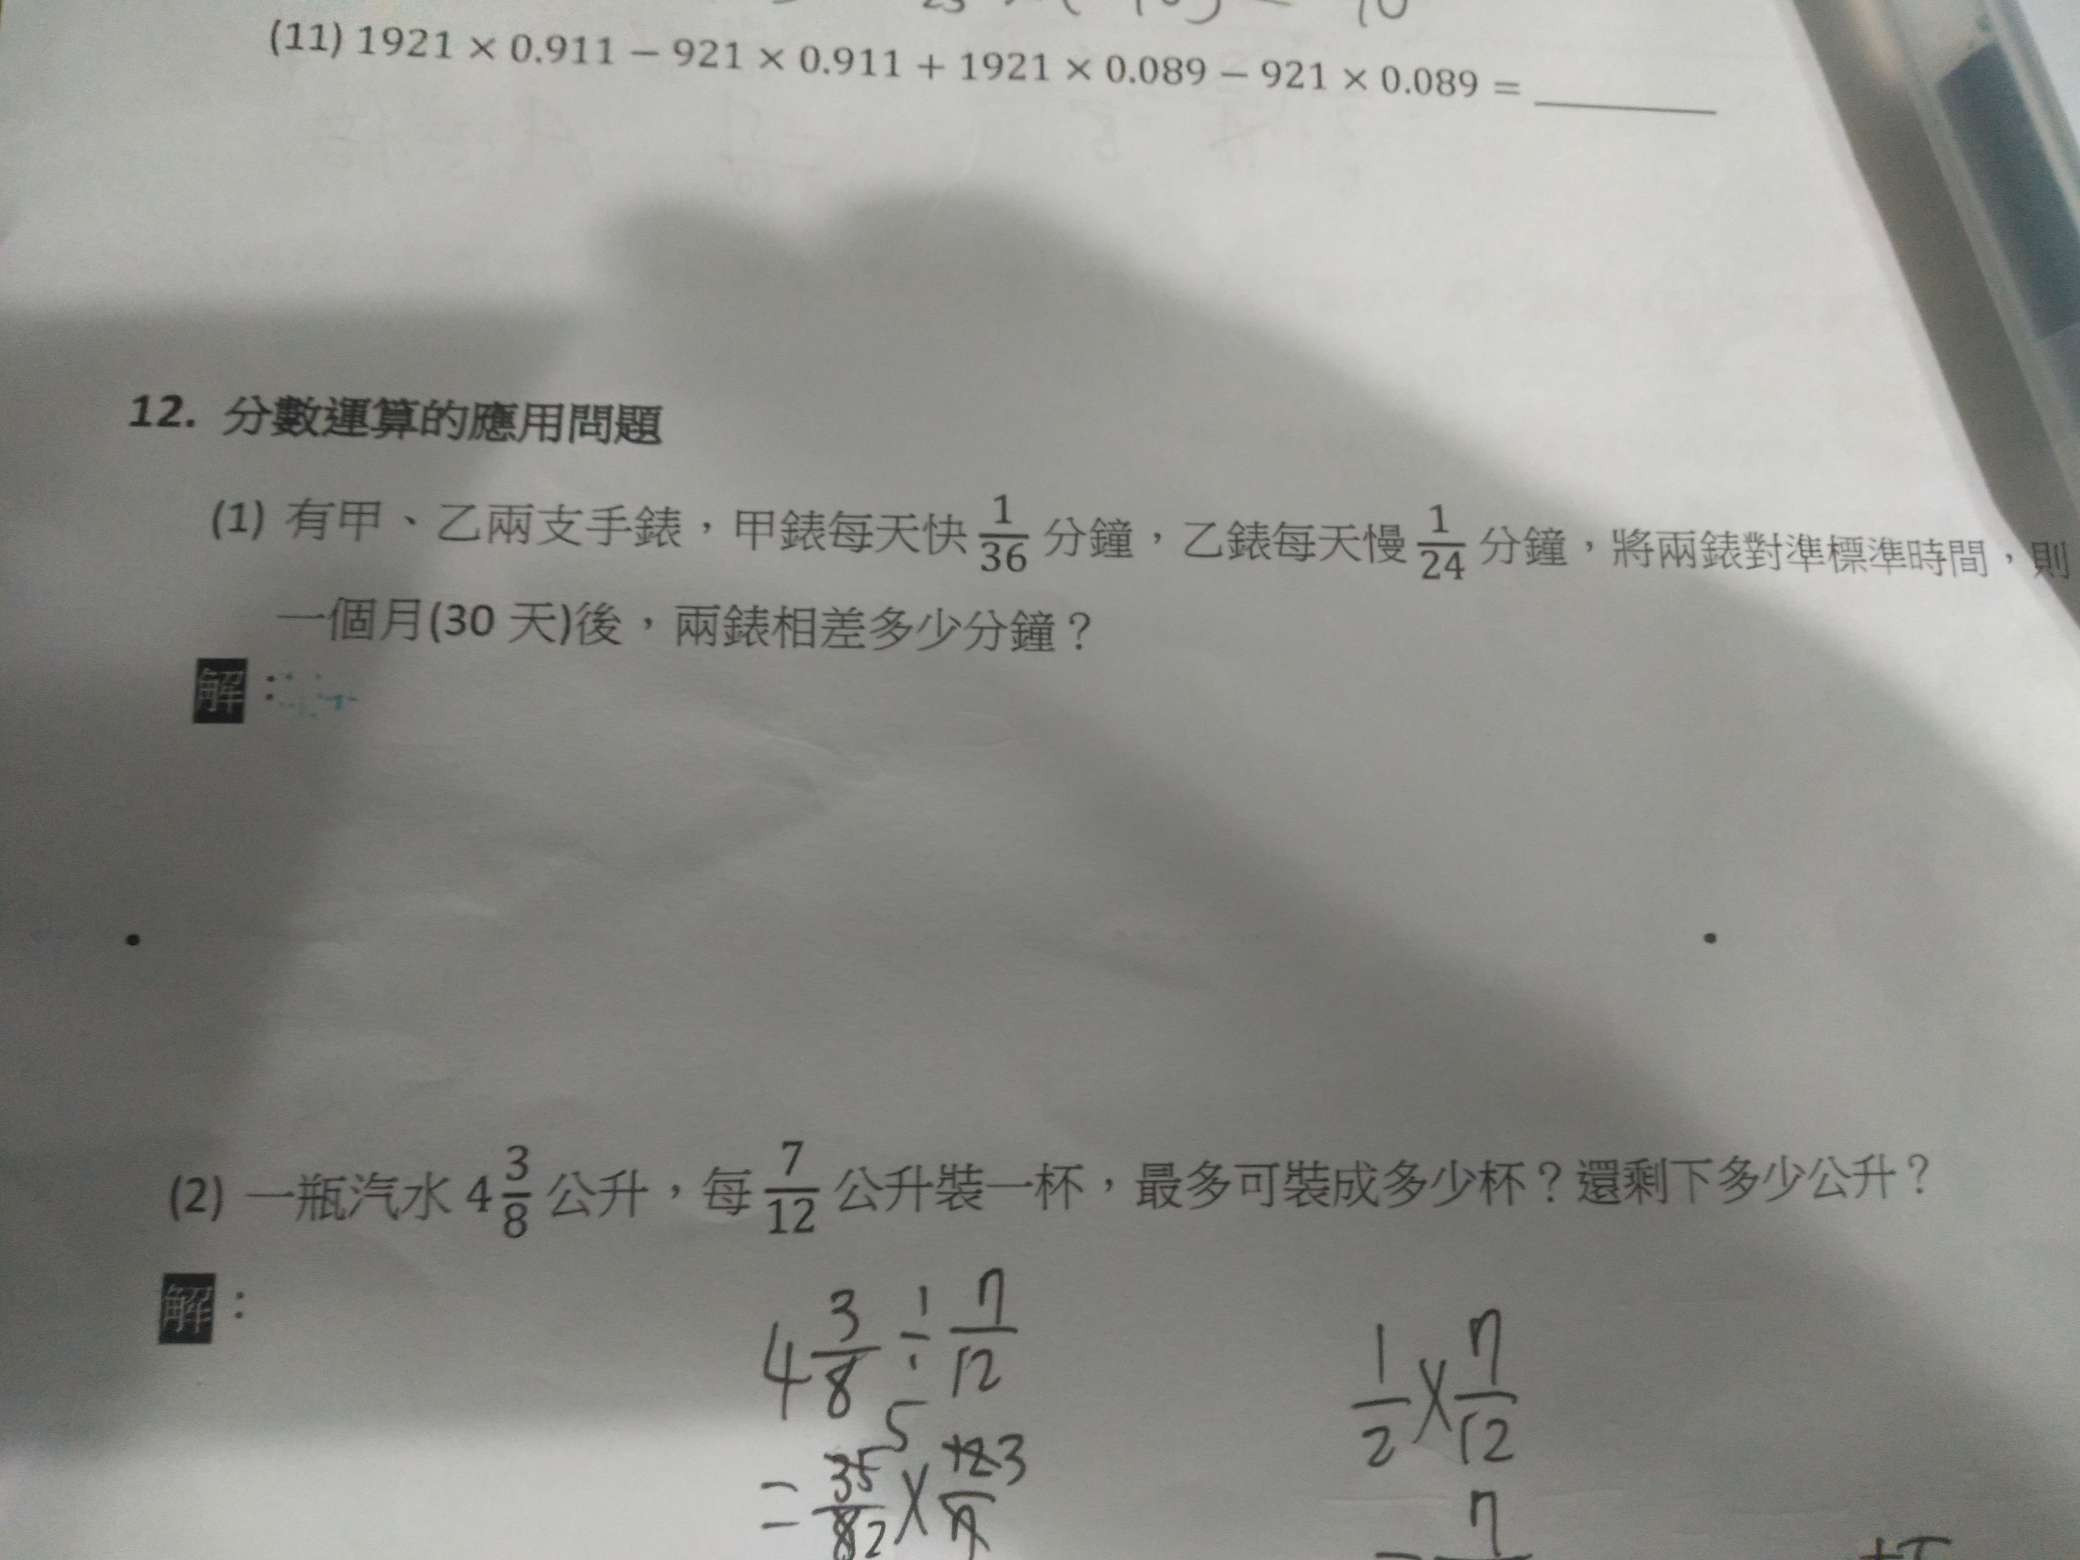 (11) 1921 × 0.911 − 921 × 0.911 + 1921 × 0.089 − 921 × 0.089 = ______
12. 分數運算的應用問題
(1) 有甲、乙兩支手錶，甲錶每天快 1/36 分鐘，乙錶每天慢 1/24 分鐘，將兩錶對準標準時間，則
一個月(30 天)後，兩錶相差多少分鐘？
解：
(2) 一瓶汽水 4 3/8 公升，每 7/12 公升裝一杯，最多可裝成多少杯？還剩下多少公升？
解：
4 3/8 ÷ 7/12
1/2 × 7/12
= 35/8 × 12/7
5 3
2
= 7